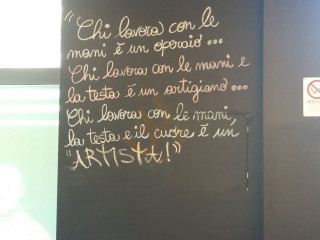 "Chi lavora con le
mani è un operaio...
Chi lavora con le mani e
la testa è un artigiano...
Chi lavora con le mani,
la testa e il cuore è un
"ARTISTA!"